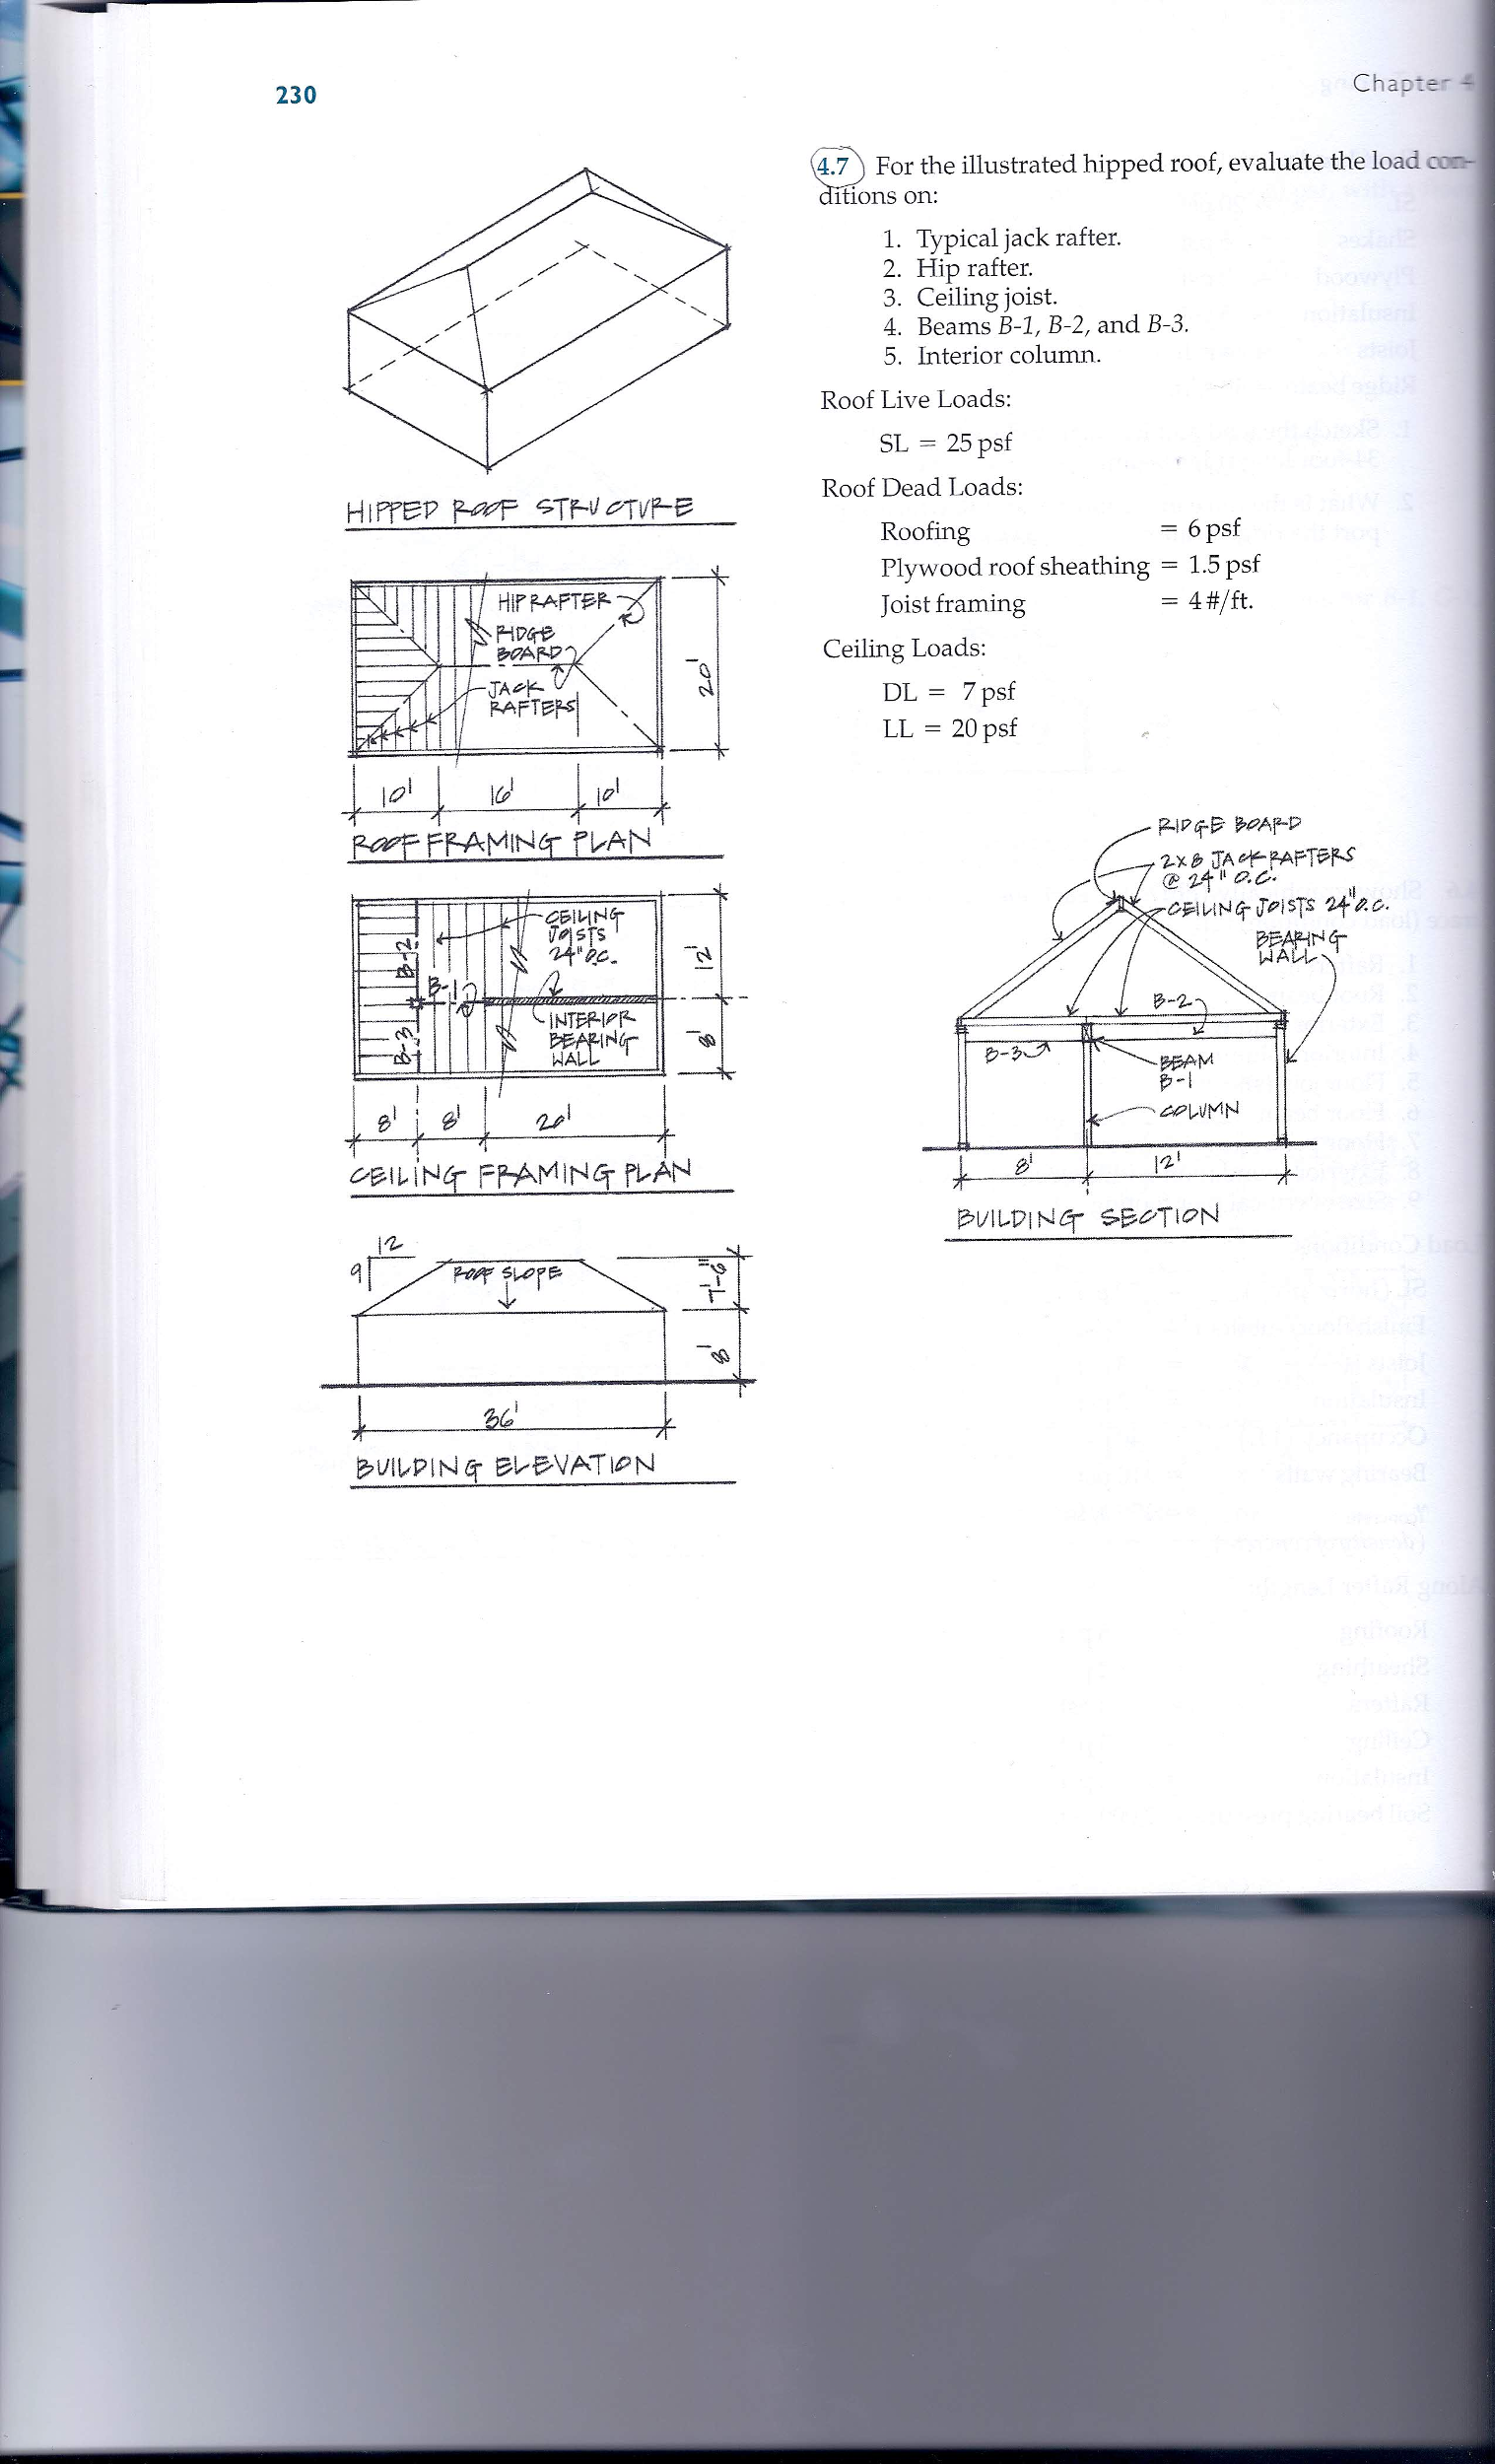 230
Chapter 4
4.7 For the illustrated hipped roof, evaluate the load con-
ditions on:
1. Typical jack rafter.
2. Hip rafter.
3. Ceiling joist.
4. Beams B-1, B-2, and B-3.
5. Interior column.
Roof Live Loads:
SL = 25 psf
Roof Dead Loads:
Roofing = 6 psf
Plywood roof sheathing = 1.5 psf
Joist framing = 4 #/ft.
Ceiling Loads:
DL = 7 psf
LL = 20 psf
HIPPED ROOF STRUCTURE
HIP RAFTER
RIDGE
BOARD
JACK
RAFTERS
20'
10'
16'
10'
ROOF FRAMING PLAN
CEILING
JOISTS
24" O.C.
B-2
B-1
B-3
INTERIOR
BEARING
WALL
12'
8'
8'
8'
20'
CEILING FRAMING PLAN
12
9
ROOF SLOPE
7'-6"
8'
36'
BUILDING ELEVATION
RIDGE BOARD
2X8 JACK RAFTERS
@ 24" O.C.
CEILING JOISTS 24" O.C.
BEARING
WALL
B-2
B-3
BEAM
B-1
COLUMN
8'
12'
BUILDING SECTION